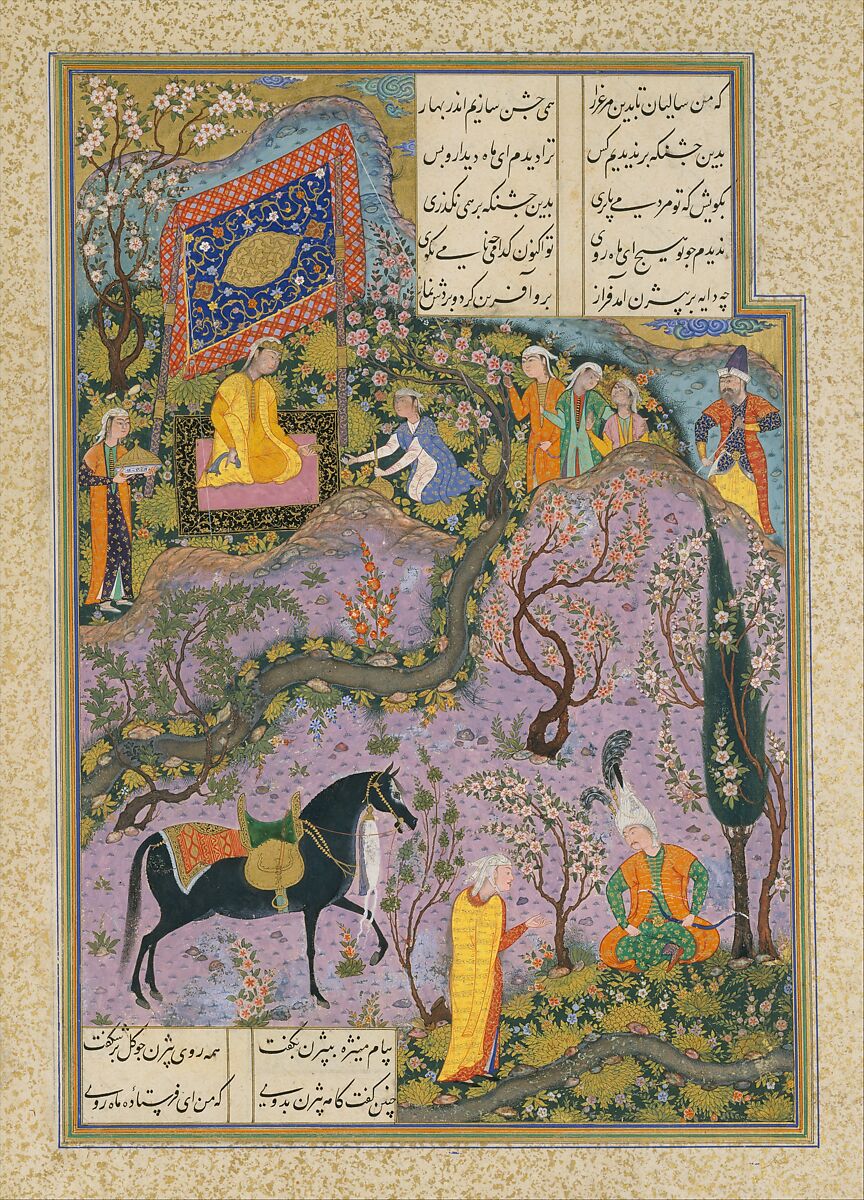 که من سالیان تا بدین مرغزار همی جشن سازیم اندر بهار
بدین جشنگه بر ندیدیم کس ترا دیدم ای ماه دیدار و بس
بکویش که تو مردمی یا پری بدین جشنگه بر همی بگذری
ندیدم چو تو هیچ ای ماه روی تو اکنون کدامی چه نامی بکوی
چو دایه بر بیژن آمد فراز برو آفرین کرد و بردش نماز
پیام منیژه ببیژن بگفت همه روی بیژن چو گل بر شکفت
چنین گفت کامه بیژن بدوی که من ای فرستاده ماه روی